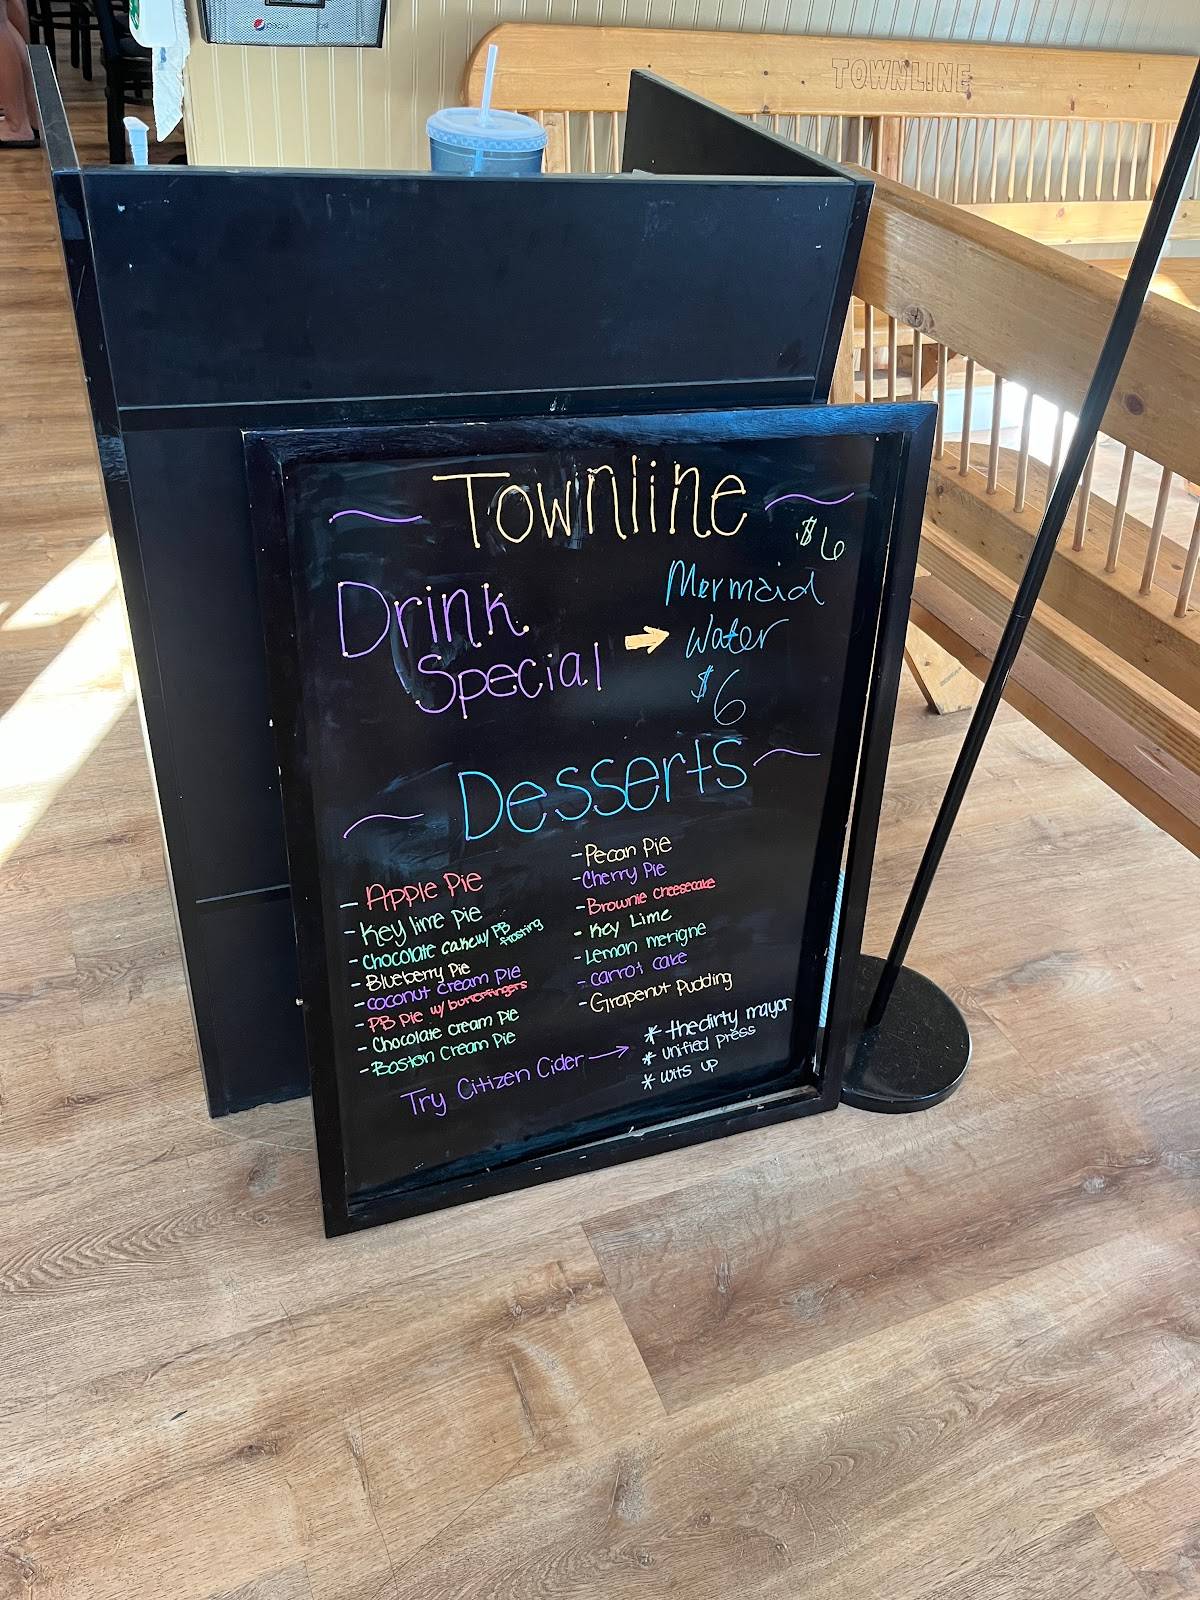 pepsi
TOWNLINE
~ Townline ~
$6
Drink
Special
Mermaid
Water
$6
~ Desserts ~
- Apple Pie
- Key lime Pie
- Chocolate cake w/ PB
frosting
- Blueberry Pie
- coconut cream Pie
- PB pie w/ butterfingers
- Chocolate Cream Pie
- Boston Cream Pie
- Pecan Pie
- Cherry Pie
- Brownie Cheesecake
- Key Lime
- Lemon merigne
- carrot cake
- Grapenut Pudding
Try Citizen Cider →
* the dirty mayor
* unified press
* wits up